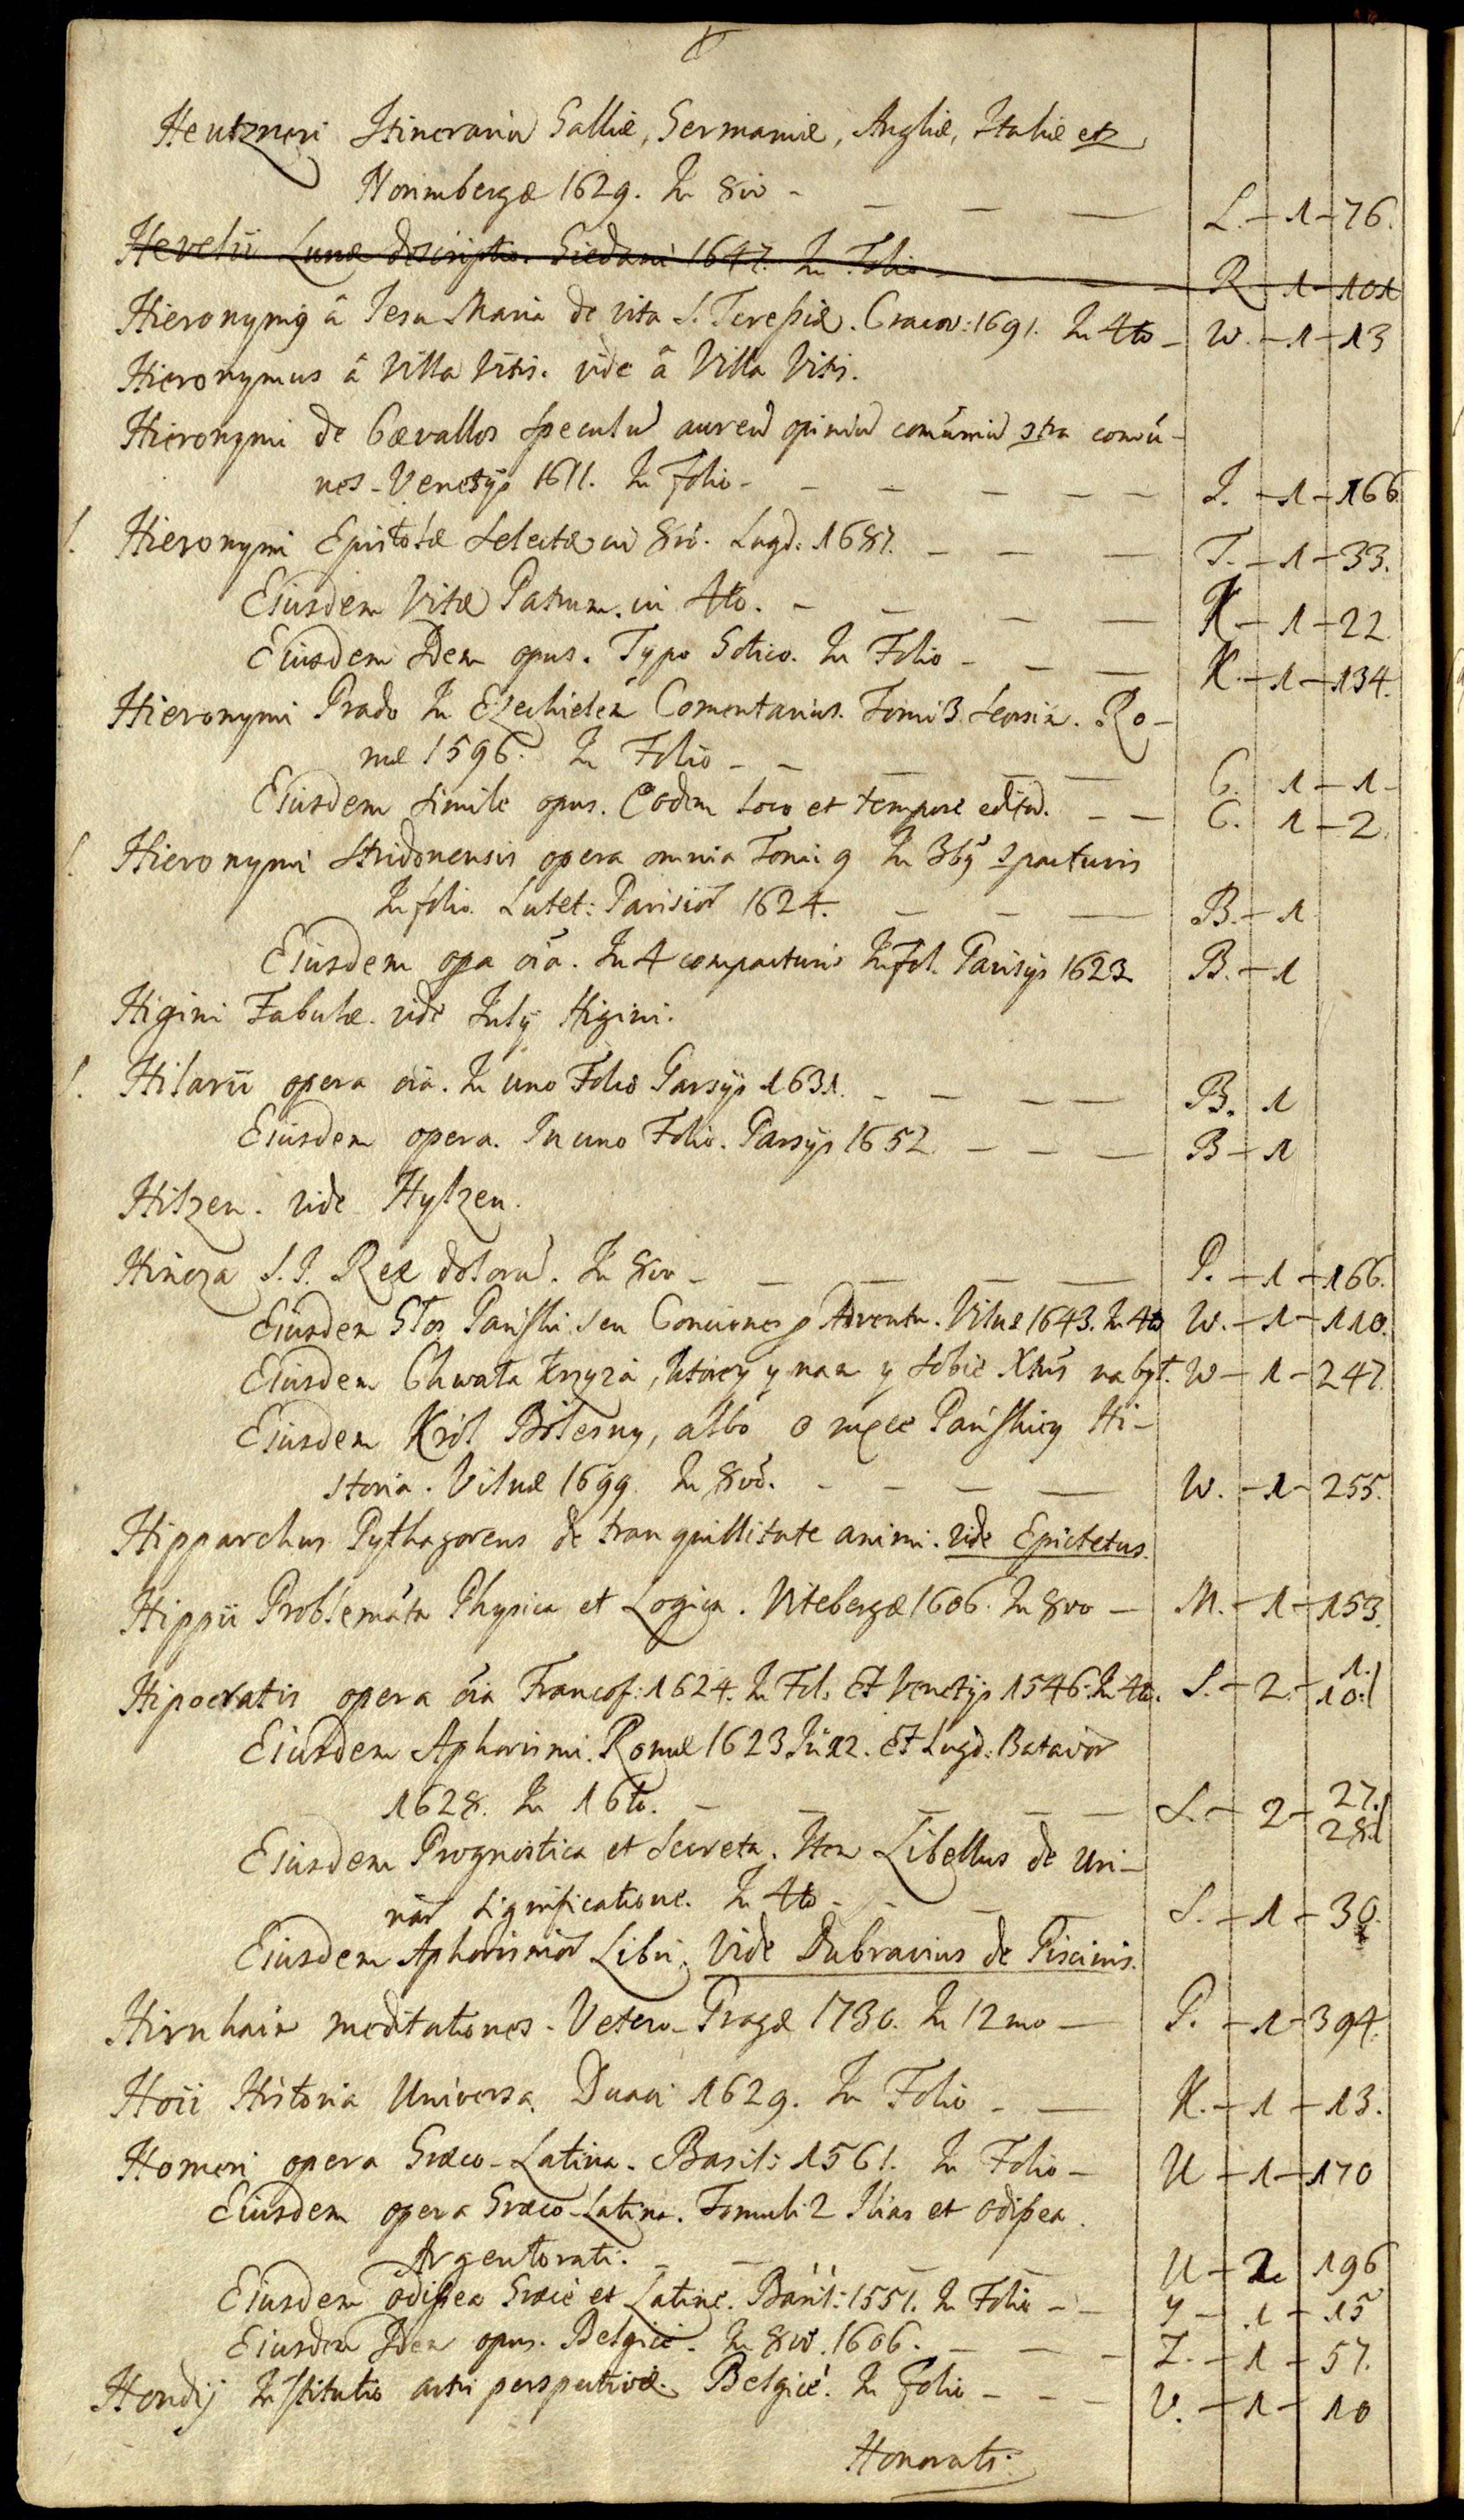 Heutzneri Itineraria Galliæ, Germaniæ, Angliæ, Italiæ etz
Norimbergæ 1629. In 8vo - L. - 1 - 76.
Hevelii Lunæ descriptio. Giedani 1647. In Folio R - 1 - 101
Hieronymꝰ â Iesu Maria de vita S. Teresiæ. Cracov: 1691. In 4to - W. - 1 - 13
Hieronymus â Villa Vitis. vide â Villa Vitis.
Hieronymi de Cævallos speculū aureū opiniū comūniū ɔtra comū-
nes - Venetijs 1611. In folio - I. - 1 - 166
S. Hieronymi Epistolæ selectæ in 8vo. Lugd: 1687. - T. - 1 - 33.
Eiusdem Vitæ Patrum. in 4to. - K - 1 - 22
Eiusdem Idem opus. Typo Gotico. In Folio - K. - 1 - 134.
Hieronymi Prado In Ezechielem Comentarius. Tomi 3. seorsim. Ro-
mæ 1596. In Folio - C. 1 - 1 -
Eiusdem simile opus. Eodem loco et tempore editū. - C. 1 - 2.
S. Hieronymi Stridonensis opera omnia Tomi 9 In 3bꝰ ɔpacturis
In folio. Lutet: Parisior 1624. - B. - 1
Eiusdem opa oīa. In 4 compacturis In Fol. Parisijs 1623 B. - 1
Higini Fabulæ. vide Iulij Higini.
S. Hilarii opera oīa. In uno Folio Parsijs 1631. - B. 1
Eiusdem opera. In uno Folio. Parsijs 1652 - B - 1
Hilzen. vide Hylzen.
Hincza S. I. Rex dolorū. In 8vo - P. - 1 - 166.
Eiusdem Głos Pański seu Conciones p Adventu. Vilnæ 1643. In 4to W. - 1 - 110.
Eiusdem Chwała krzyża, ktorey y nam y sobie Xtus nabył. W - 1 - 247.
Eiusdem Król Bolesny, albo o męce Pańskiey Hi-
storia. Vilnæ 1699. In 8vo. - W. - 1 - 255.
Hipparchus Pythagoreus de tranquillitate animi. vide Epictetus.
Hippii Problemata Physica et Logica. Vitebergæ 1606. In 8vo - M. - 1 - 153.
Hipocratis opera oīa Francof: 1624. In Fol. Et Venetijs 1546. In 4to. S. - 2. - 1. 10.
Eiusdem Aphorismi. Romæ 1623 In 12. Et Lugd: Batavor
1628. In 16to. - S. - 2 - 27. 28.
Eiusdem Prognostica et Secreta. Item Libellus de Uri-
nar significatione. In 4to - S. - 1 - 30.
Eiusdem Aphorismor Libri. Vide Dubravius de Piscinis.
Hirnhaim meditationes. Vetero-Pragæ 1730. In 12mo - P. - 1 - 394.
Hoii Historia Universa. Duaci 1629. In Folio - K. - 1 - 13.
Homeri opera Græco-Latina. Basil: 1561. In Folio - U - 1 - 170
Eiusdem opera Græco-Latina. Tomuli 2 Ilias et odissea.
Argentorati. - U - 2 196
Eiusdem odissea Græce et Latine. Basil: 1551. In Folio - Y - 1 - 15
Eiusdem Idem opus. Belgice. In 8vo. 1606. - Z. - 1 - 57.
Hondij Institutio artis perspectivæ. Belgicè. In folio - V. - 1 - 10
Honorati